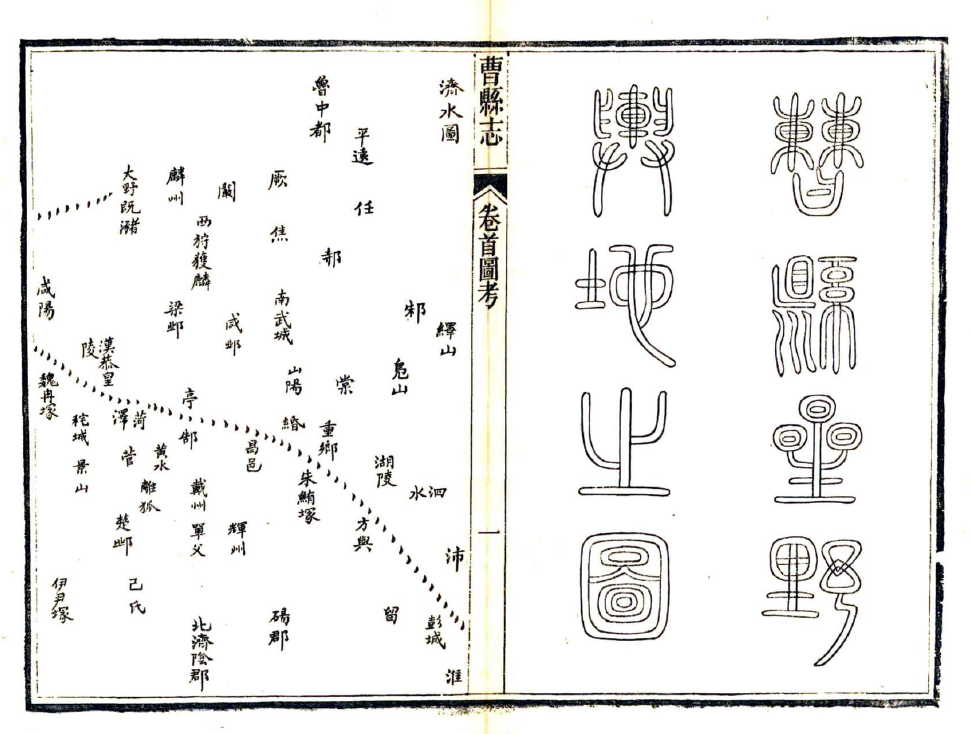 曹縣星野
輿地之圖
曹縣志
卷首圖考
一
濟水圖
繹山
泗水
沛
彭城
淮
邾
鳧山
湖陵
留
平遠
任
方與
魯中都
邿
棠
重鄉
朱鮪塚
厥
焦
南武城
山陽
緡
碭郡
闞
咸邱
昌邑
輝州
西狩獲麟
麟州
梁邱
亭
郜
戴州
單父
北濟陰郡
大野既瀦
菏澤
黃水
離狐
菅
楚邱
己氏
漢恭皇陵
秺城
景山
咸陽
魏冉塚
伊尹塚